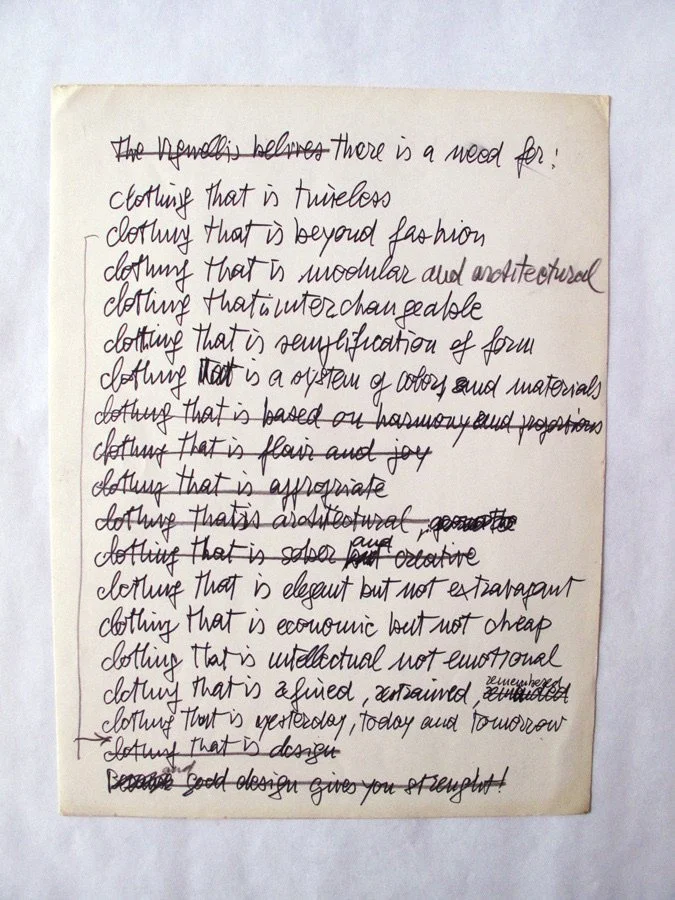 the Vignellis belives there is a need for:
clothing that is timeless
clothing that is beyond fashion
clothing that is modular and architectural
clothing that is interchangeable
clothing that is semplification of form
clothing that is a system of colors and materials
clothing that is based on harmony and proportions
clothing that is flair and joy
clothing that is appropriate
clothing that is architectural,
clothing that is sober and creative
clothing that is elegant but not extravagant
clothing that is economic but not cheap
clothing that is intellectual not emotional
clothing that is refined, restrained, remembered
clothing that is yesterday, today and tomorrow
clothing that is design
Because and good design gives you strenght!